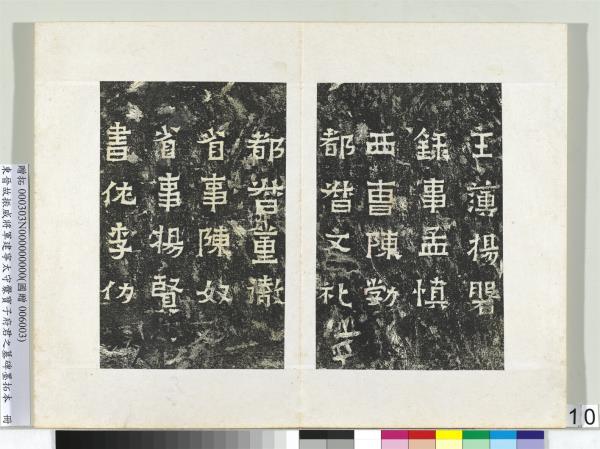 主薄揚磐
錄事孟慎
西曹陳勃
都督文礼
都督董徹
省事陳奴
省事揚賢
書佐李仂
贈拓 000303N000000000(國贈 006003)
東晉故振威將軍建寧太守爨寶子府君之墓碑墨拓本 冊
10